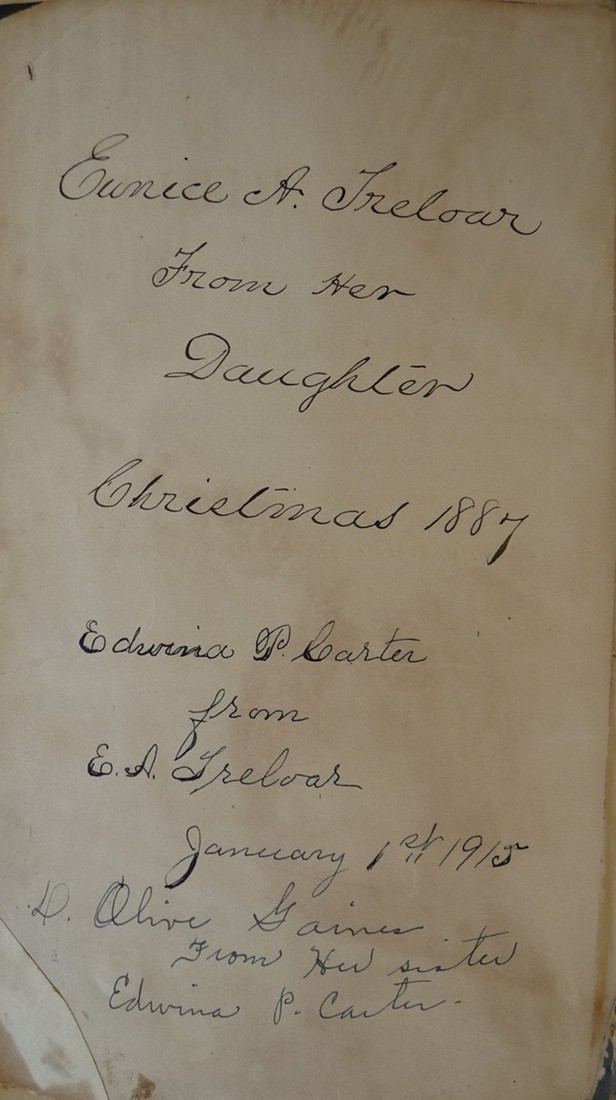 Eunice A. Treloar
From Her
Daughter
Christmas 1887
Edwina P. Carter
from
E. A. Treloar
January 1st 1915
D. Olive Gaines
From Her sister
Edwina P. Carter.